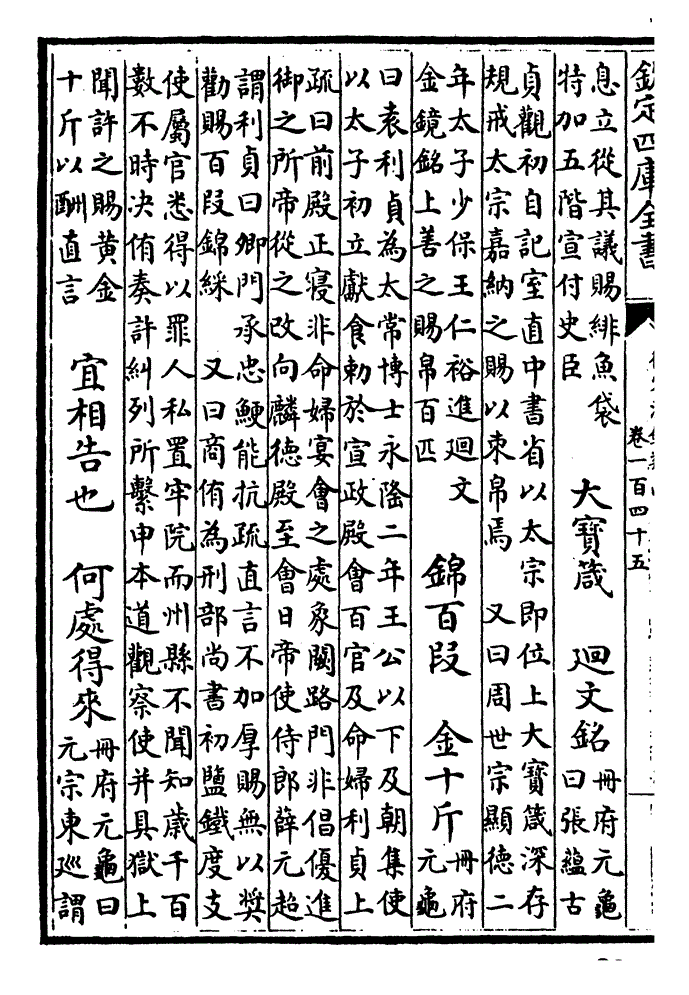 欽定四庫全書
卷一百四十五
息立從其議賜緋魚袋
特加五階宣付史臣
大寶箴　廻文銘
冊府元龜
曰張蘊古
貞觀初自記室直中書省以太宗即位上大寶箴深存
規戒太宗嘉納之賜以束帛焉　又曰周世宗顯德二
年太子少保王仁裕進廻文
金鏡銘上善之賜帛百匹
錦百段　金十斤
冊府
元龜
曰袁利貞為太常博士永隆二年王公以下及朝集使
以太子初立獻食勅於宣政殿會百官及命婦利貞上
疏曰前殿正寢非命婦宴會之處象闕路門非倡優進
御之所帝從之改向麟德殿至會日帝使侍郎薛元超
謂利貞曰卿門承忠鯁能抗疏直言不加厚賜無以奬
勸賜百段錦綵　又曰商侑為刑部尚書初鹽鐵度支
使屬官悉得以罪人私置牢院而州縣不聞知歳千百
數不時决侑奏許糾列所繫申本道觀察使并具獄上
聞許之賜黄金
十斤以酬直言
宜相告也　何處得來
冊府元龜曰
元宗東廵謂